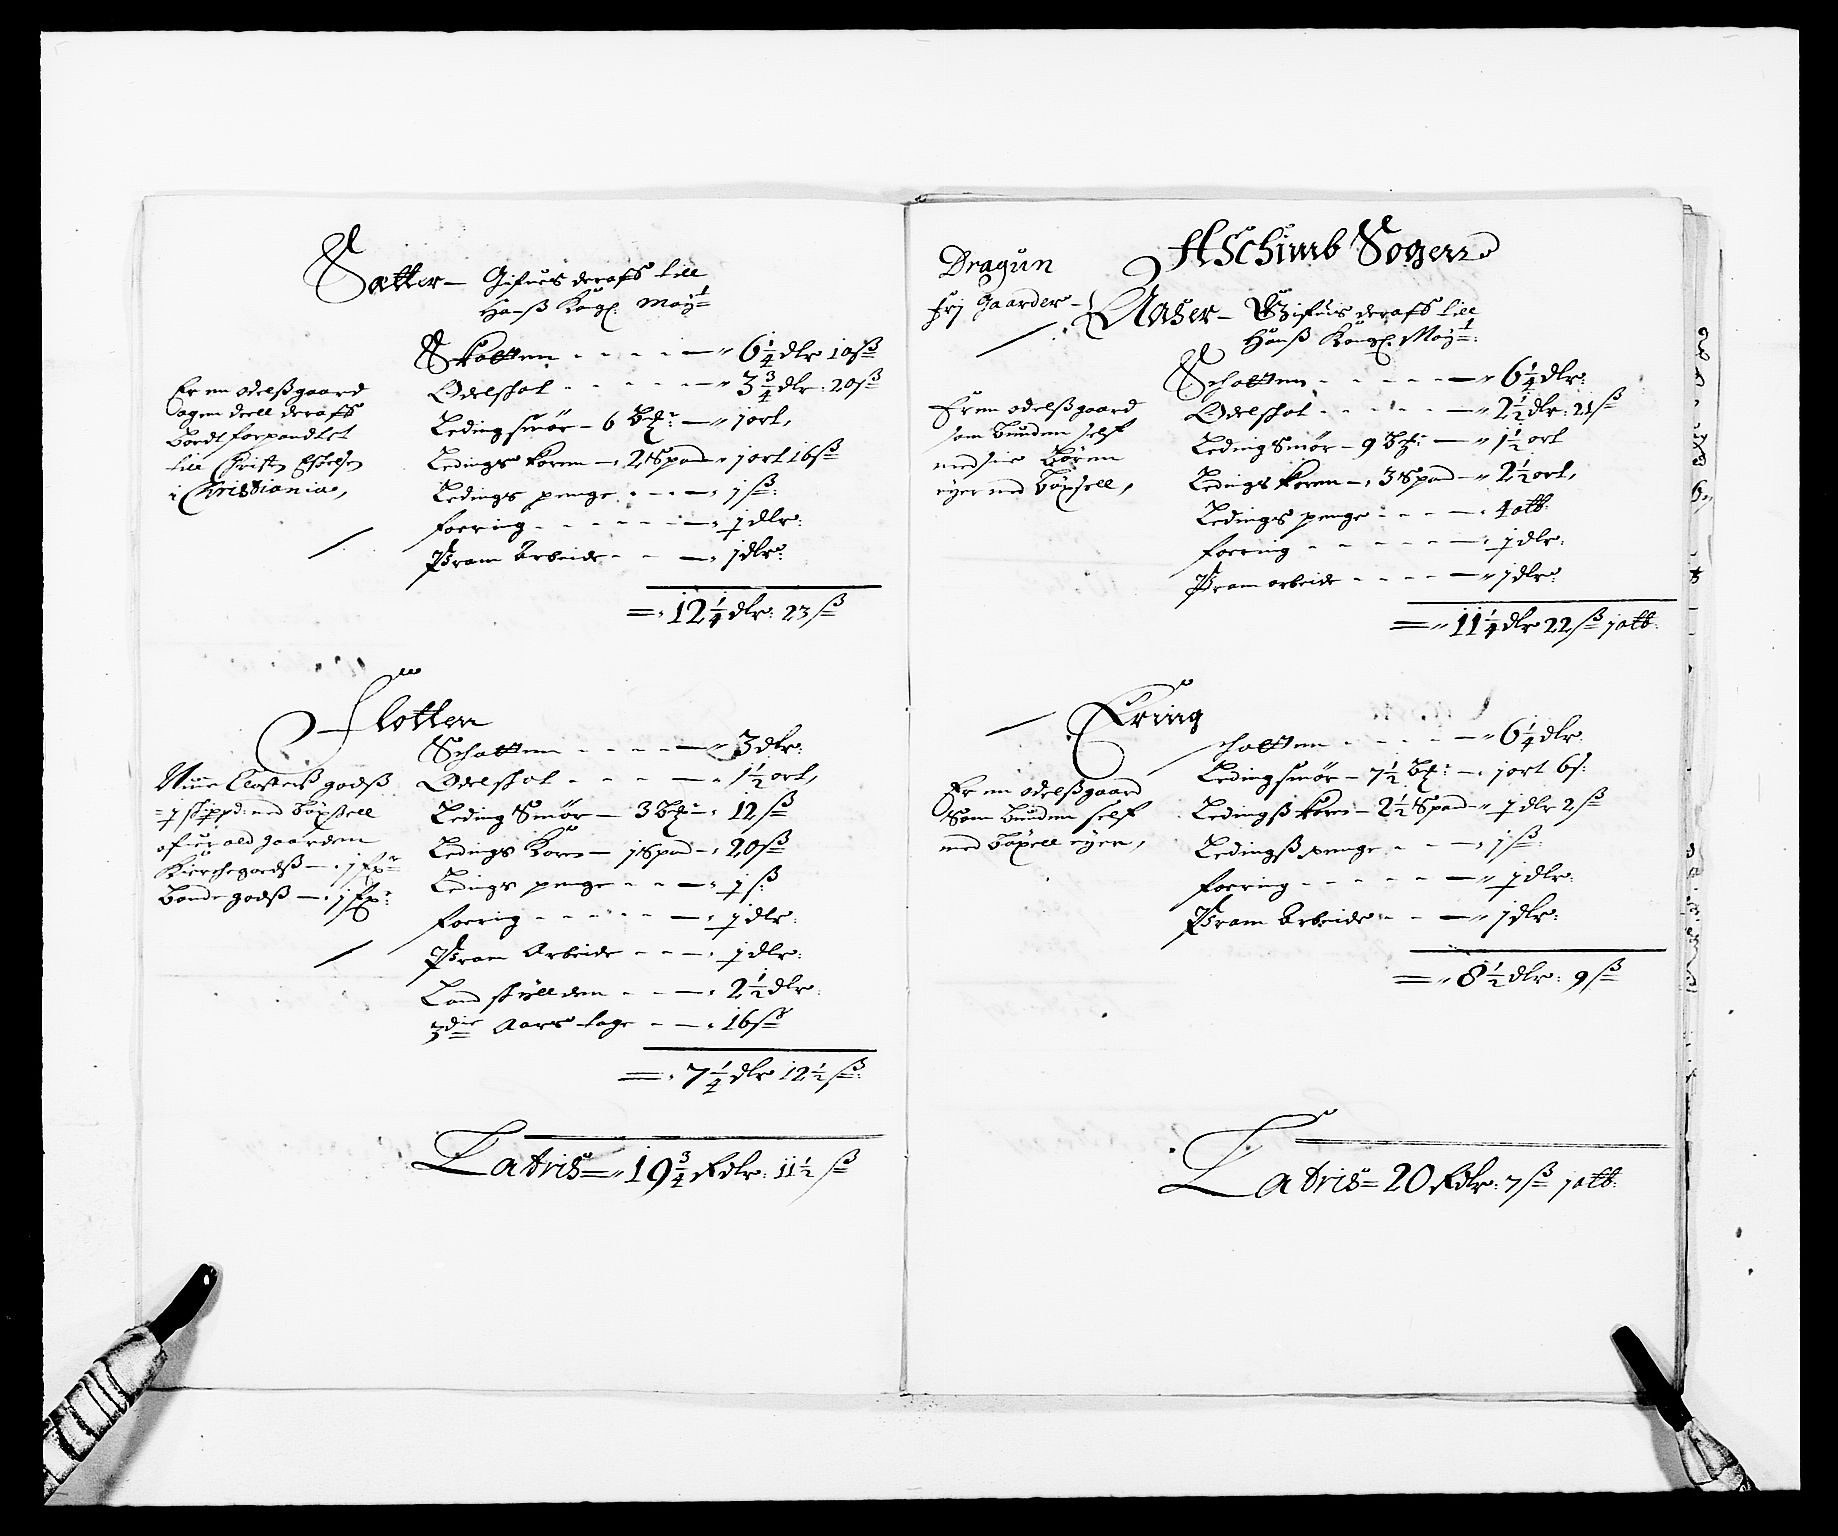 Sætter — Gifuis deraff till
Hanß Kongl: Mayt:
Er en odelßgaard
ogen deell deraff
bordt forpandtet
till Christen
i Christiania,
Skatten - - - - — 6 1/4 dlr 10 ß
Odelskat - - - - - — 3 3/4 dlr: 20 ß
Ledingsmør — 6 bß: — 1 ort,
Ledings koren — 2 Spad — 1 ort 16 ß
Ledings penge - - — 1 ß:
foering - - - - - — 1 dlr:
Pram Arbeide - - — 1 dlr:
= 12 1/4 dlr: 23 ß
Slotten
Nunne Closters godß
1 skippd: med böxsell
ofuer ald gaarden
Kierchegodß — 1 fx:
Bondegodß — 1 fx:
Schatten - - - - — 3 dlr:
Odelskat - - - - — 1 1/2 ort,
Leding Smör — 3 bß — 12 ß
Ledings Koren — 1 Spad — 20 ß
Ledings penge - - — 1 ß:
foering - - - - - — 1 dlr:
Pram Arbeide - - — 1 dlr:
Landskyllden - - — 2 1/2 dlr:
3die Aars tage - — 16 ß
= 7 1/4 dlr 12 1/2 ß:
Lateris = 19 3/4 Rdlr: 11 1/2 ß
Aschimb Sogen
Dragun
frj gaarder —
Aaser — Gifuis deraff till
Hanß Kongl: Mayt:
Er en odelßgaard
som bunden self
med sine Börn
eyer med böxsell,
Schatten - - - - - — 6 1/4 dlr:
Odelskat - - - - — 2 1/2 dlr: 21 ß
Leding Smör — 9 bß: — 1 1/2 ort
Ledings koren — 3 Spad — 2 1/2 ort,
Ledings penge - - - — 4 alb:
foering - - - - - — 1 dlr:
Pram arbeide - - - - — 1 dlr:
= 11 1/4 dlr 22 ß 1 alb:
Ering
Er en odelßgaard
Som bunden self
med böxsell eyer,
Schatten - - - - — 6 1/4 dlr:
Ledingsmör — 7 1/2 bß: — 1 ort 6 ß:
Ledingß koren — 2 1/2 Spad — 1 dlr 2 ß
Ledingß penge - - — 1 ß:
foering - - - - - — 1 dlr:
Pram Arbeide - - — 1 dlr:
= 8 1/2 dlr: 9 ß
Lateris = 20 Rdlr: 7 ß 1 alb: